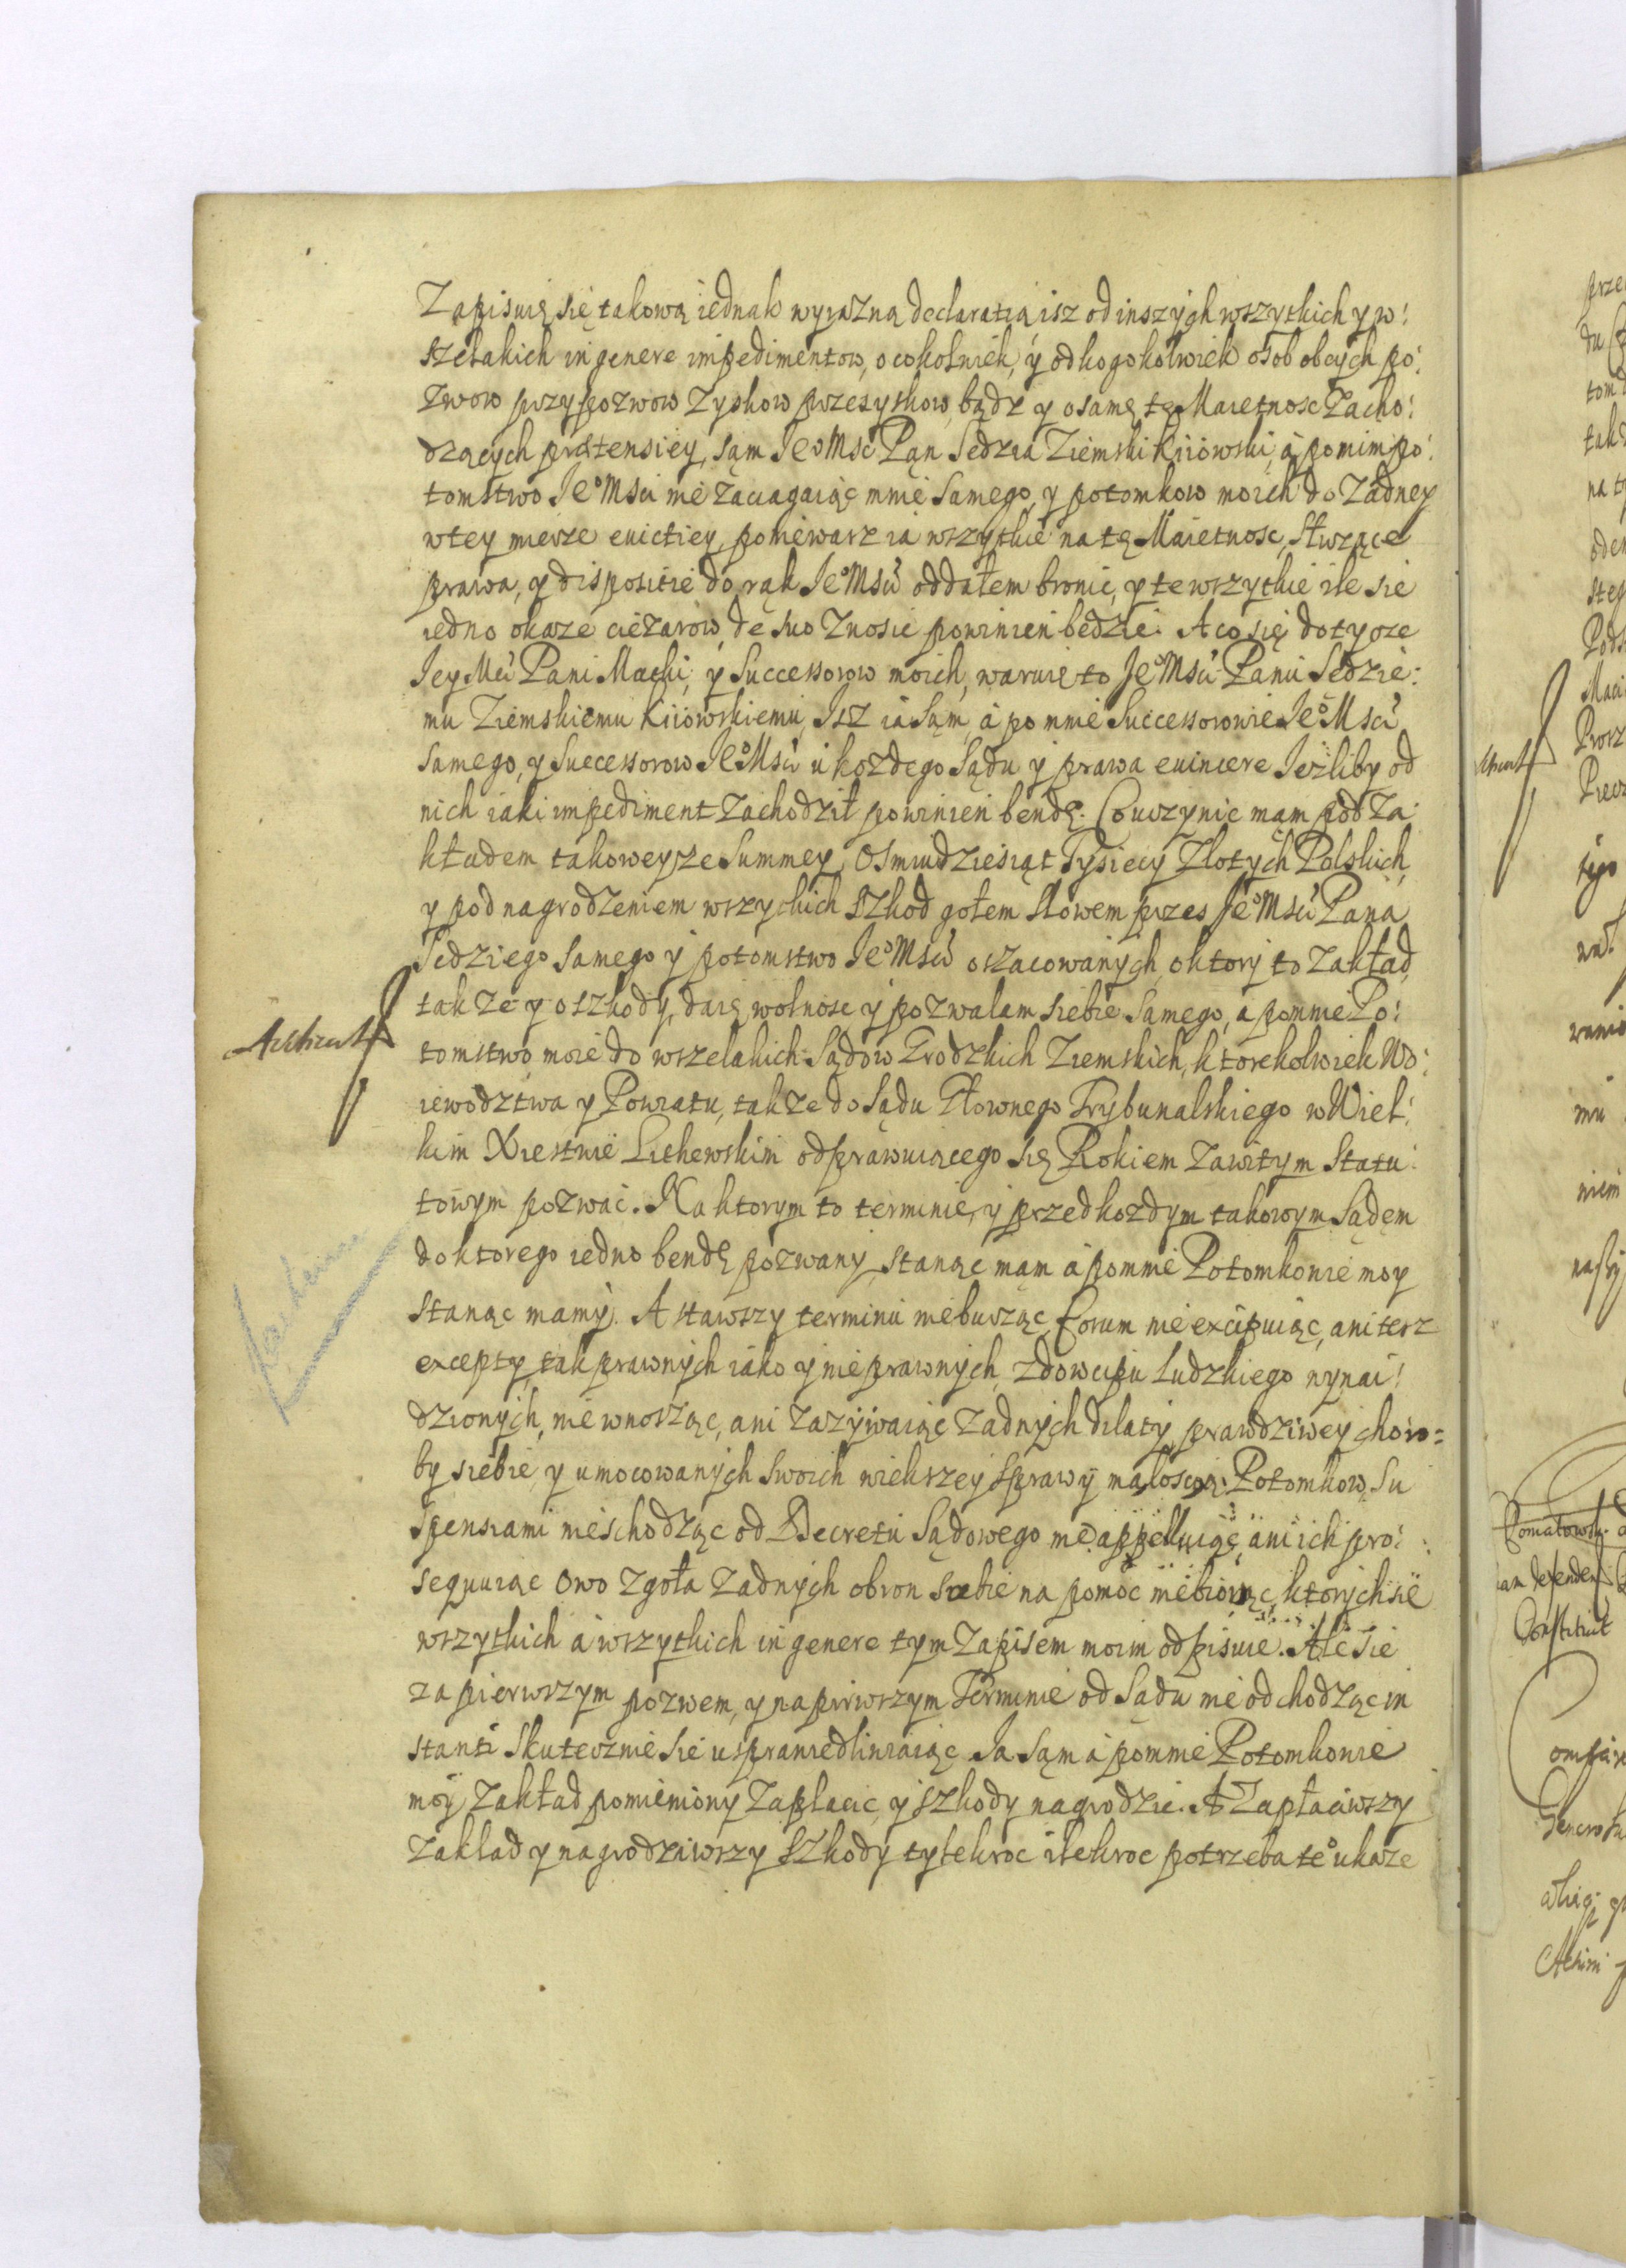 Zapisuię się takową iednak wyraźną declaratią isz od inszych wszytkich y w:
szelakich in genere impedimentow, o cokolwiek, y od kogokolwiek osob obcych po:
zwow przypozwow Zyskow przesyskow, bądz y o samę tę Maiętnosc Zacho:
dzących prætensiey, sąm Je°Msc Pąn Sędzia Ziemski Kiiowski, à po nim po:
tomstwo Je°Msci nie zaciągaiąc mnie samego, y potomkow moich do Zadney
w tey mierze euictiey, poniewasz ia wszytkie na tę Maiętnosc, słuzące
prawa, y dispositie do rąk Je°Msci oddałem bronic, y te wszytkie ile sie
iedno okaze ciężarow, de suo Znosic powinien będzie. A co się dotycze
Jey Mci Pani Matki, y Successorow moich, waruię to Je°Msci Panu Sędzie:
mu Ziemskiemu Kiiowskiemu, Jsz ia Sąm, à po mnie Successorowie Je°Msci
samego, y Successorow Je°Msci u kozdego Sądu y prawa euincere Jezliby od
nich iaki impediment Zachodził powinien bendę. Co uczynic mam pod Za:
kładem takoweysze Summey, Osmudziesiąt Tysięcy Złotych Polskich,
y pod nagrodzeniem wszyckich Szkod gołem słowem przes Je°Msci Pana
Sędziego samego y potomstwo Je°Msci oszacowanych, o ktory to Zakład,
takze y o szkody, daię wolnosc y pozwalam siebie samego, a po mnie Po:
tomstwo moie do wszelakich Sądow Grodzkich Ziemskich, ktorekolwiek Wo:
iewodztwa y Powiatu, takze do Sądu Głownego Trybunalskiego w Wiel:
kim Xięstwie Lithewskim odprawuiącego się Rokiem Zawitym Statu:
towym pozwac. Na ktorym to terminie, y przed kozdym takowym Sądem
do ktorego iedno bendę pozwany, stanąc mąm à po mnie Potomkowie moy
stanąc mamy. A stawszy terminu nie burząc, Forum nie excipuiąc, ani tesz
excepty, tak prawnych iako y nie prawnych, z dowcipu ludzkiego wynai:
dzionych, nie wnosząc, ani zazywaiąc Zadnych dilaty, prawdziwey choro=
by siebie, y umocowanych swoich wiekszey sprawy małoscią Potomkow, Su
spensiami nie schodząc od Decretu Sądowego nie appelluiąc, ani ich pro:
sequuiąc Owo zgoła Zadnych obron siebie na pomoc nie biorąc, ktorych się
wszytkich à wszytkich in genere tym Zapisem moim odpisuie. Ale sie
za pierwszym pozwem, y na pierwszym Terminie od Sądu nie odchodząc in
stanti skutecznie się usprawiedliwiaiąc Ja sąm à po mnie Potomkowie
moy Zakład pomieniony Zapłacic, y szkody nagrodzic. A Zapłaciwszy
Zakład y nagrodziwszy szkody tylekroc ilekroc potrzeba te° ukaze